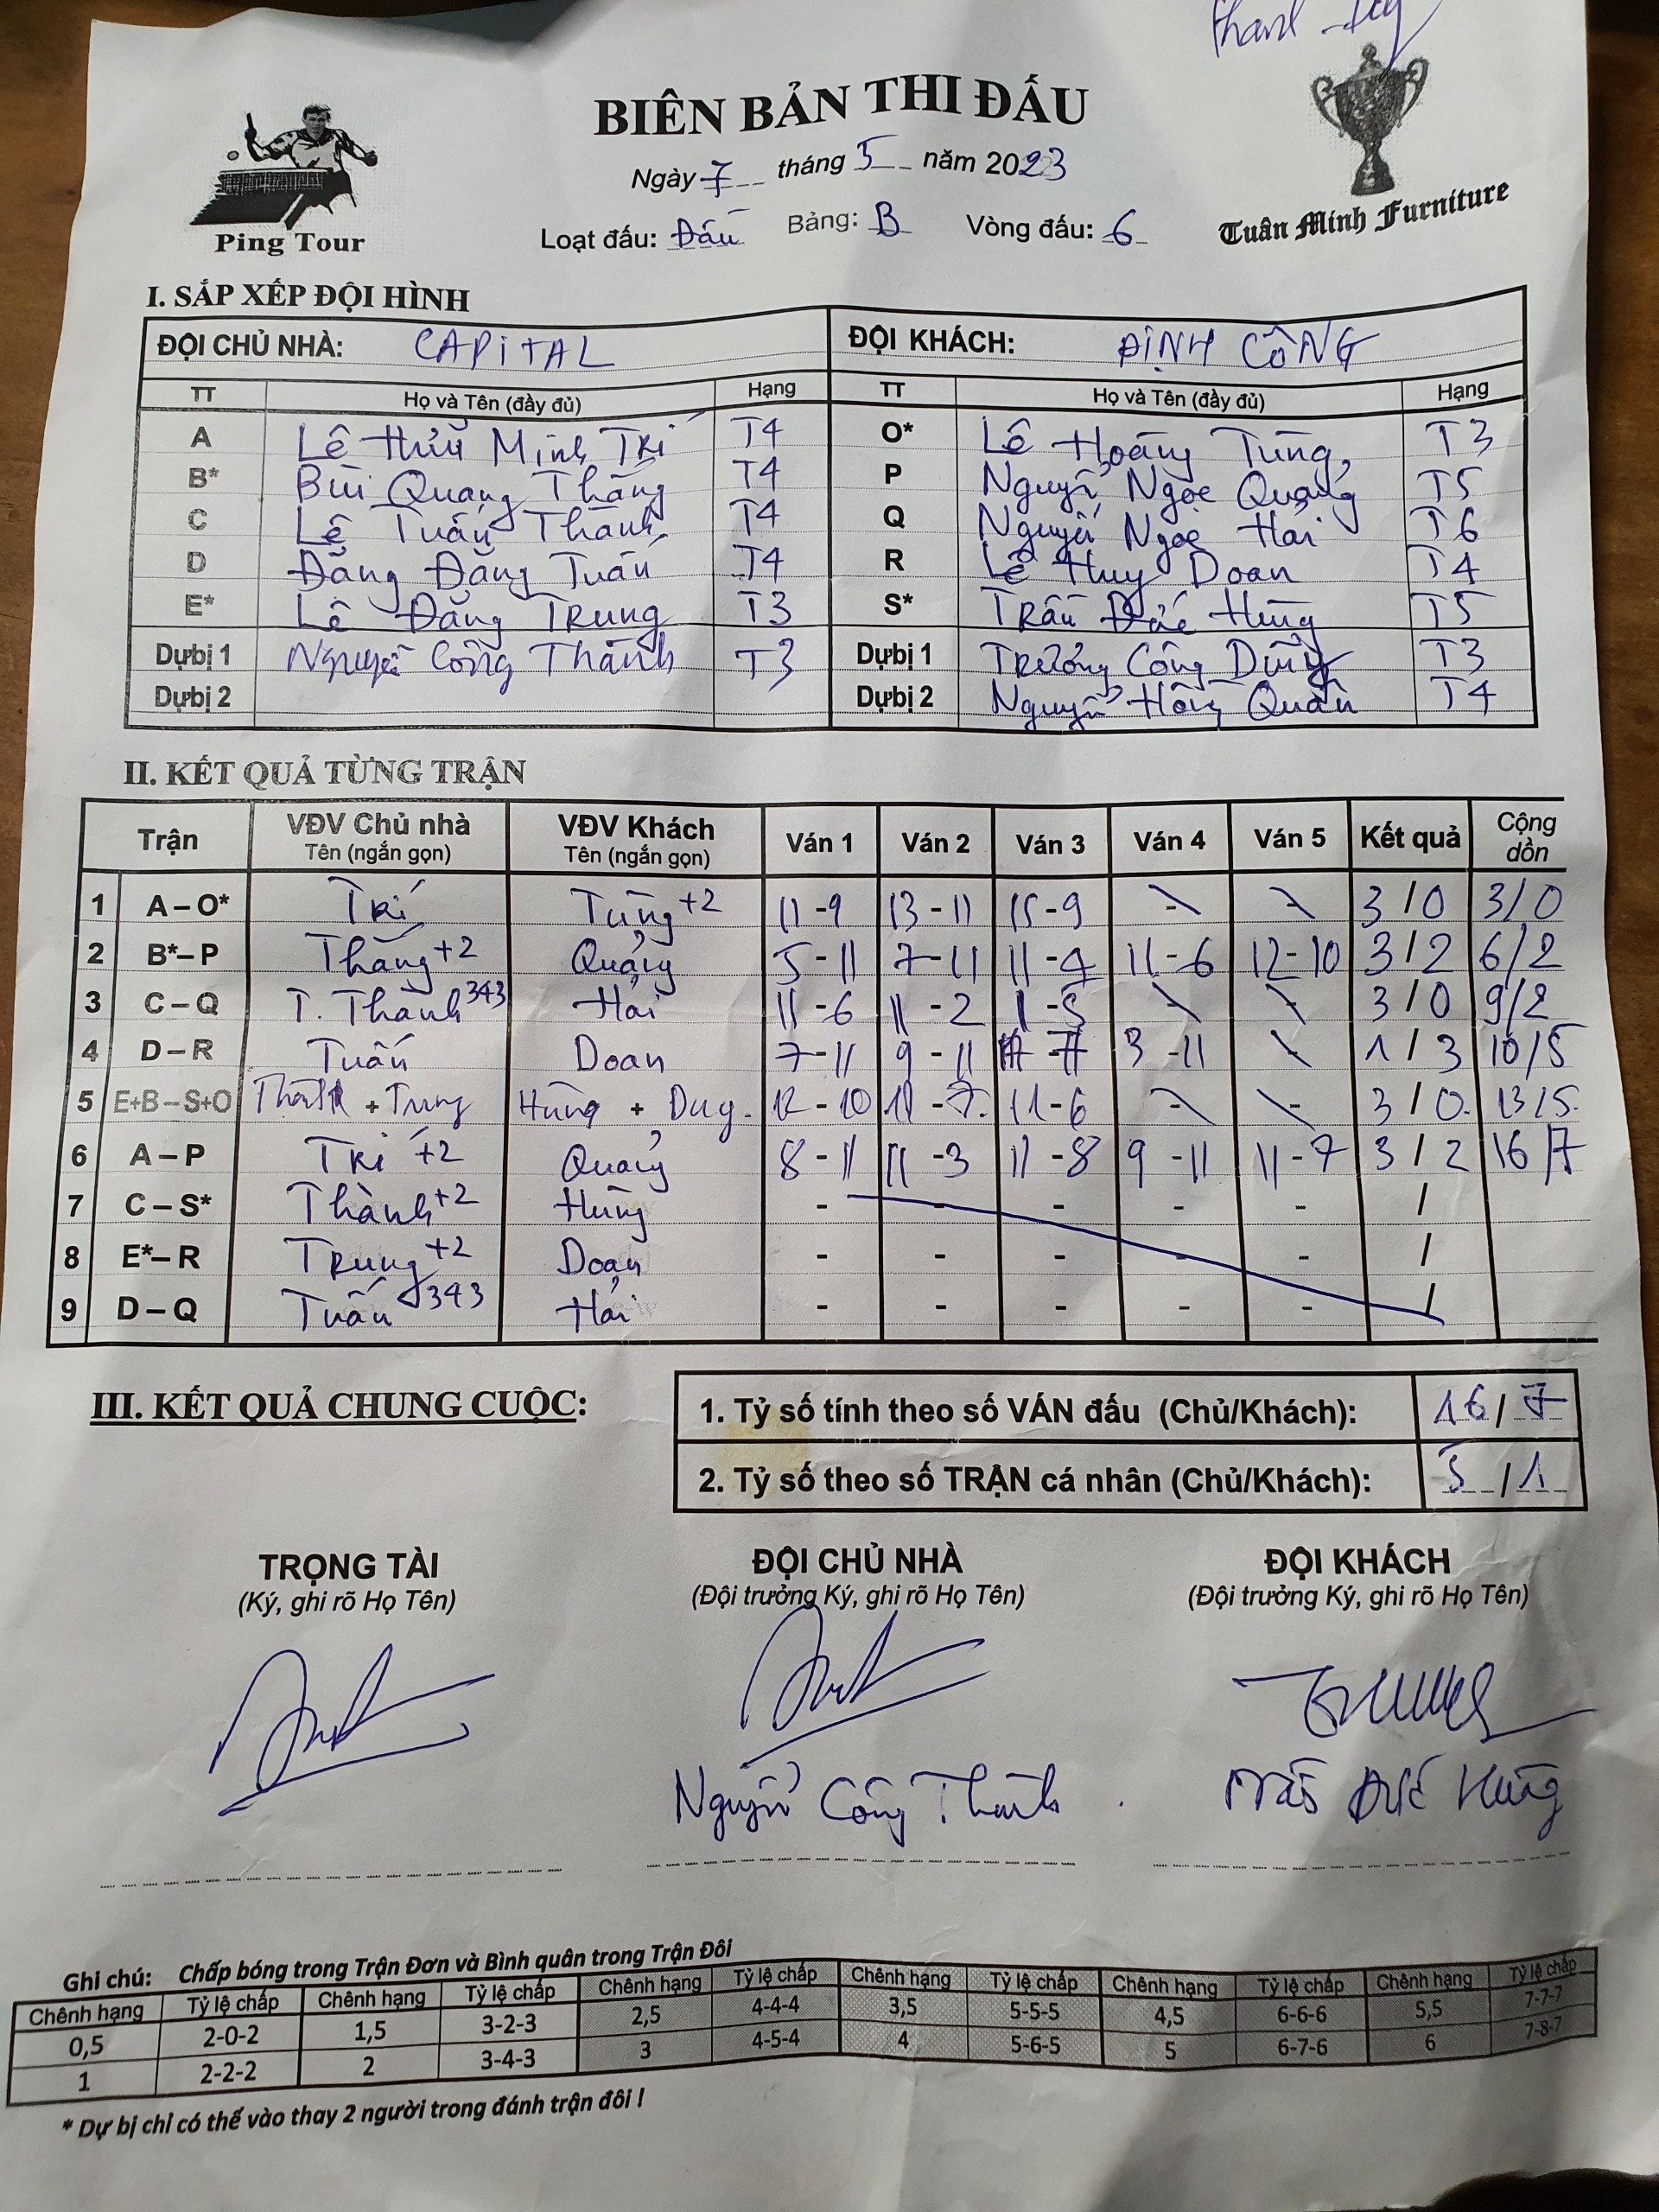 BIÊN BẢN THI ĐẤU
Ngày 7 tháng 5 năm 2023
Loạt đấu: Đấu Bảng: B Vòng đấu: 6
Ping Tour
Tuân Minh Furniture
I. SẮP XẾP ĐỘI HÌNH
ĐỘI CHỦ NHÀ: CAPITAL ĐỘI KHÁCH: ĐỊNH CÔNG
TT Họ và Tên (đầy đủ) Hạng TT Họ và Tên (đầy đủ) Hạng
A Lê Thửu Minh Trí T4 O* Lê Hoàng Tùng T3
B* Bùi Quang Thắng T4 P Nguyễn Ngọc Quảng T5
C Lê Tuấn Thành T4 Q Nguyễn Ngọc Hải T6
D Đặng Đăng Tuấn T4 R Lê Huy Doan T4
E* Lê Đăng Trung T3 S* Trần Đức Hùng T5
Dự bị 1 Nguyễn Công Thành T3 Dự bị 1 Trương Công Duy T3
Dự bị 2 Dự bị 2 Nguyễn Hồng Quân T4
II. KẾT QUẢ TỪNG TRẬN
Trận VĐV Chủ nhà Tên (ngắn gọn) VĐV Khách Tên (ngắn gọn) Ván 1 Ván 2 Ván 3 Ván 4 Ván 5 Kết quả Cộng dồn
1 A – O* Trí Tùng +2 11 - 9 13 - 11 15 - 9 - - 3 / 0 3/0
2 B* – P Thắng +2 Quảng 5 - 11 7 - 11 11 - 4 11 - 6 12 - 10 3 / 2 6/2
3 C – Q T. Thành 343 Hải 11 - 6 11 - 2 11 - 5 - - 3 / 0 9/2
4 D – R Tuấn Doan 7 - 11 9 - 11 - 7 3 - 11 - 1 / 3 10/5
5 E+B – S+O Thành + Trung Hùng + Duy. 12 - 10 11 - 7. 11 - 6 - - 3 / 0. 13/5
6 A – P Trí +2 Quảng 8 - 11 11 - 3 11 - 8 9 - 11 11 - 7 3 / 2 16/7
7 C – S* Thành +2 Hùng - - - - - /
8 E* – R Trung +2 Doan - - - - - /
9 D – Q Tuấn 343 Hải - - - - - /
III. KẾT QUẢ CHUNG CUỘC:
1. Tỷ số tính theo số VÁN đấu (Chủ/Khách): 16 / 7
2. Tỷ số theo số TRẬN cá nhân (Chủ/Khách): 5 / 1
TRỌNG TÀI ĐỘI CHỦ NHÀ ĐỘI KHÁCH
(Ký, ghi rõ Họ Tên) (Đội trưởng Ký, ghi rõ Họ Tên) (Đội trưởng Ký, ghi rõ Họ Tên)
Nguyễn Công Thành . Trần Đức Hùng
Ghi chú: Chấp bóng trong Trận Đơn và Bình quân trong Trận Đôi
Chênh hạng Tỷ lệ chấp Chênh hạng Tỷ lệ chấp Chênh hạng Tỷ lệ chấp Chênh hạng Tỷ lệ chấp Chênh hạng Tỷ lệ chấp Chênh hạng Tỷ lệ chấp
0,5 2-0-2 1,5 3-2-3 2,5 4-4-4 3,5 5-5-5 4,5 6-6-6 5,5 7-7-7
1 2-2-2 2 3-4-3 3 4-5-4 4 5-6-5 5 6-7-6 6 7-8-7
* Dự bị chỉ có thể vào thay 2 người trong đánh trận đôi !